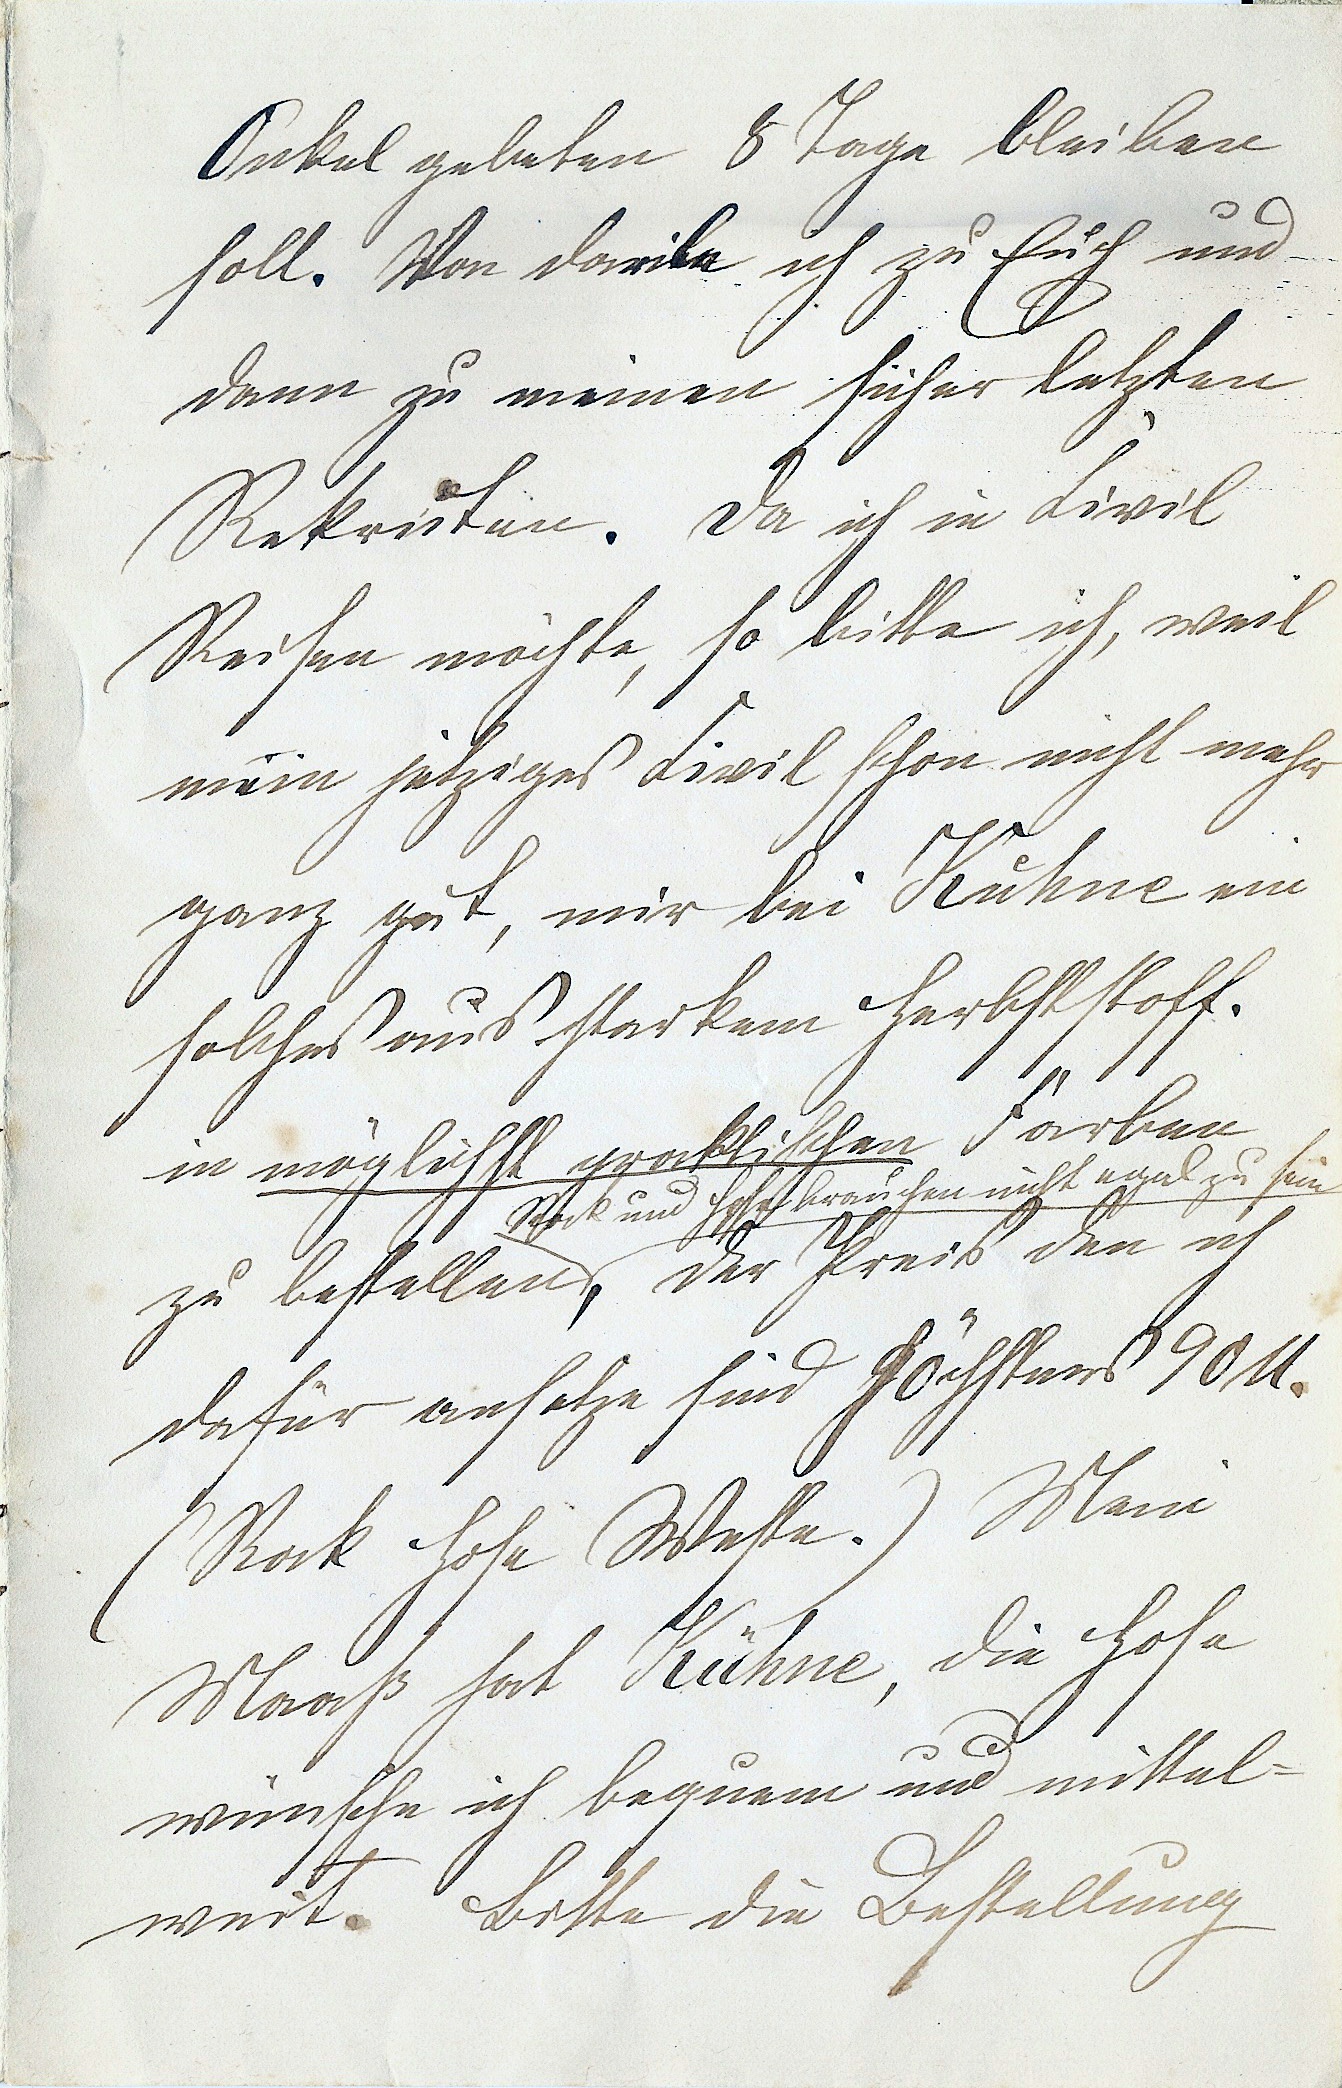 Onkel gebeten 8 Tage bleiben
soll. Von da eile ich zu Euch und
dann zu meinen sicher letzten
Rekruten. Da ich in Civil
Reisen möchte, so bitte ich, weil
mein jetziges Civil schon nicht mehr
ganz gut, mir bei Kühne ein
solches aus starkem Herbststoff.
in möglichst praktischen Farben
Rock und Hose brauchen nicht egal zu sein
zu bestellen, der Preis den ich
dafür ansetze sind höchstens 90 M.
(Rock Hose Weste.) Mein
Maaß hat Kühne, die Hose
wünsche ich bequem und mittel-
weit. Bitte die Bestellung